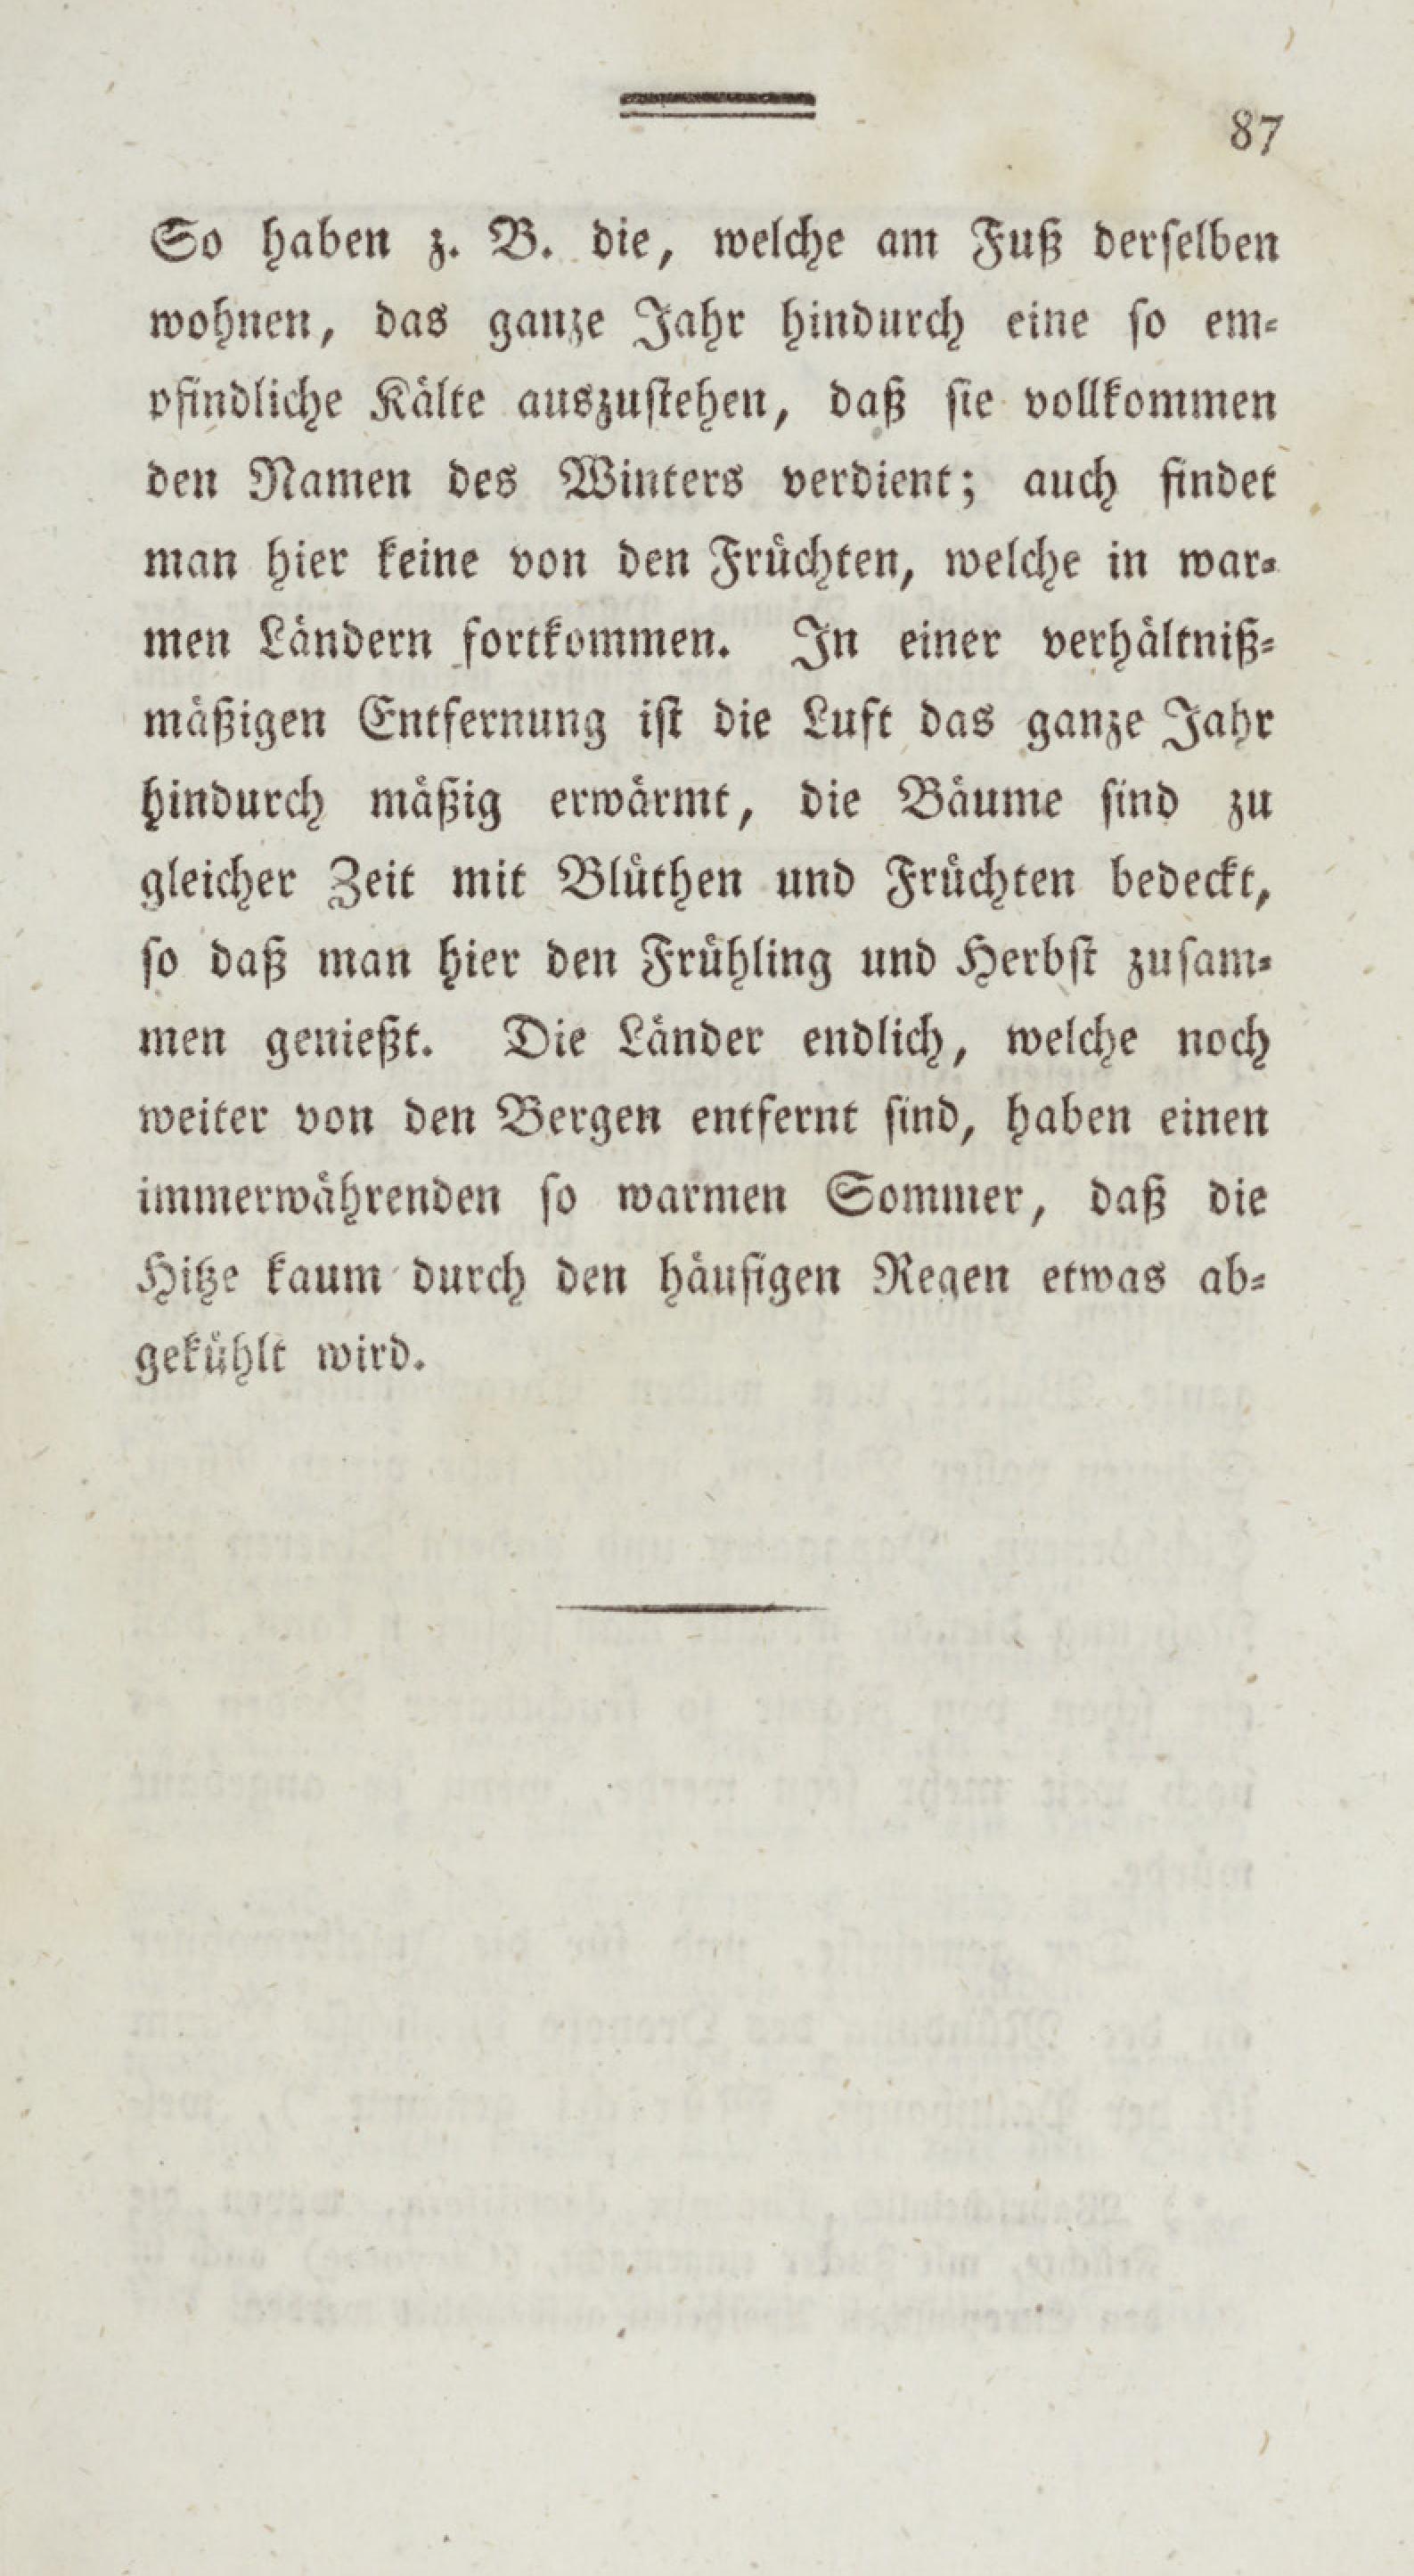 87
So haben z. B. die, welche am Fuß derſelben
wohnen, das ganze Jahr hindurch eine ſo em⸗
pfindliche Kälte auszuſtehen, daß ſie vollkommen
den Namen des Winters verdient; auch findet
man hier keine von den Früchten, welche in war⸗
men Ländern fortkommen. In einer verhältniß⸗
mäßigen Entfernung iſt die Luft das ganze Jahr
hindurch mäßig erwärmt, die Bäume ſind zu
gleicher Zeit mit Blüthen und Früchten bedeckt,
ſo daß man hier den Frühling und Herbſt zuſam⸗
men genießt. Die Länder endlich, welche noch
weiter von den Bergen entfernt ſind, haben einen
immerwährenden ſo warmen Sommer, daß die
Hitze kaum durch den häufigen Regen etwas ab⸗
gekühlt wird.